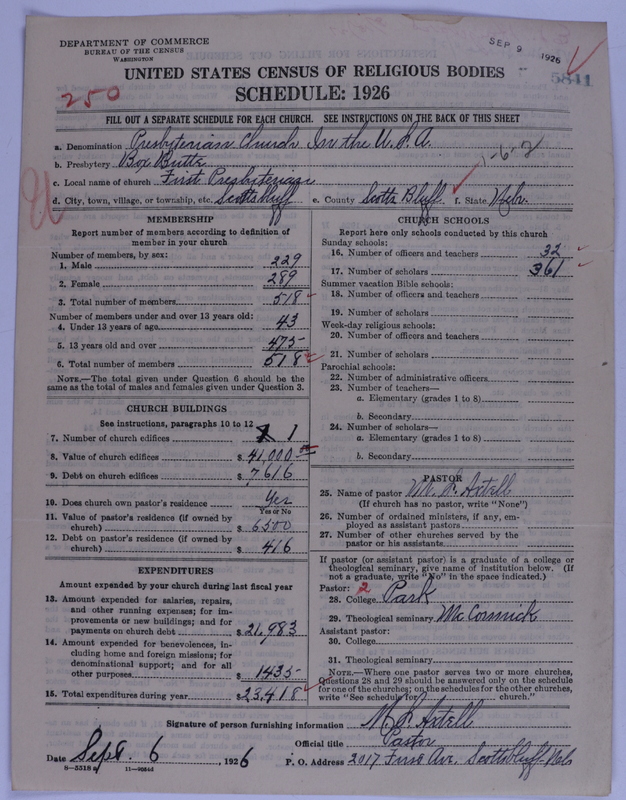 DEPARTMENT OF COMMERCE
BUREAU OF THE CENSUS
WASHINGTON
SEP 9 1926
5841
UNITED STATES CENSUS OF RELIGIOUS BODIES
SCHEDULE: 1926
250
FILL OUT A SEPARATE SCHEDULE FOR EACH CHURCH. SEE INSTRUCTIONS ON THE BACK OF THIS SHEET
a. Denomination Presbyterian Church In the U.S.A.
b. Presbytery Box Butte
1-6-2
c. Local name of church First Presbyterian
d. City, town, village, or township, etc. Scottsbluff e. County Scotts Bluff f. State Nebr.
MEMBERSHIP
Report number of members according to definition of
member in your church
Number of members, by sex:
1. Male 229
2. Female 289
3. Total number of members 518
Number of members under and over 13 years old:
4. Under 13 years of age 43
5. 13 years old and over 475
6. Total number of members 518
NOTE.—The total given under Question 6 should be the
same as the total of males and females given under Question 3.
CHURCH BUILDINGS
See instructions, paragraphs 10 to 12
7. Number of church edifices 1
8. Value of church edifices $ 41,000
9. Debt on church edifices $ 7616
10. Does church own pastor's residence Yes
Yes or No
11. Value of pastor's residence (if owned by
church) $ 6500
12. Debt on pastor's residence (if owned by
church) $ 416
EXPENDITURES
Amount expended by your church during last fiscal year
13. Amount expended for salaries, repairs,
and other running expenses; for im-
provements or new buildings; and for
payments on church debt $ 21,983
14. Amount expended for benevolences, in-
cluding home and foreign missions; for
denominational support; and for all
other purposes $ 1435
15. Total expenditures during year $ 23,418
CHURCH SCHOOLS
Report here only schools conducted by this church
Sunday schools:
16. Number of officers and teachers 32
17. Number of scholars 361
Summer vacation Bible schools:
18. Number of officers and teachers
19. Number of scholars
Week-day religious schools:
20. Number of officers and teachers
21. Number of scholars
Parochial schools:
22. Number of administrative officers
23. Number of teachers—
a. Elementary (grades 1 to 8)
b. Secondary
24. Number of scholars—
a. Elementary (grades 1 to 8)
b. Secondary
PASTOR
25. Name of pastor M. L. Axtell
(If church has no pastor, write "None")
26. Number of ordained ministers, if any, em-
ployed as assistant pastors
27. Number of other churches served by the
pastor or his assistants
If pastor (or assistant pastor) is a graduate of a college or
theological seminary, give name of institution below. (If
not a graduate, write "No" in the space indicated.)
Pastor: 2
28. College Park
29. Theological seminary McCormick
Assistant pastor:
30. College
31. Theological seminary
NOTE.—Where one pastor serves two or more churches,
Questions 28 and 29 should be answered only on the schedule
for one of the churches; on the schedules for the other churches,
write "See schedule for church."
Signature of person furnishing information M. L. Axtell
Official title Pastor
Date Sept. 6, 1926 P. O. Address 2017 First Ave. Scottsbluff-Neb
8—5518 a 11—9084d